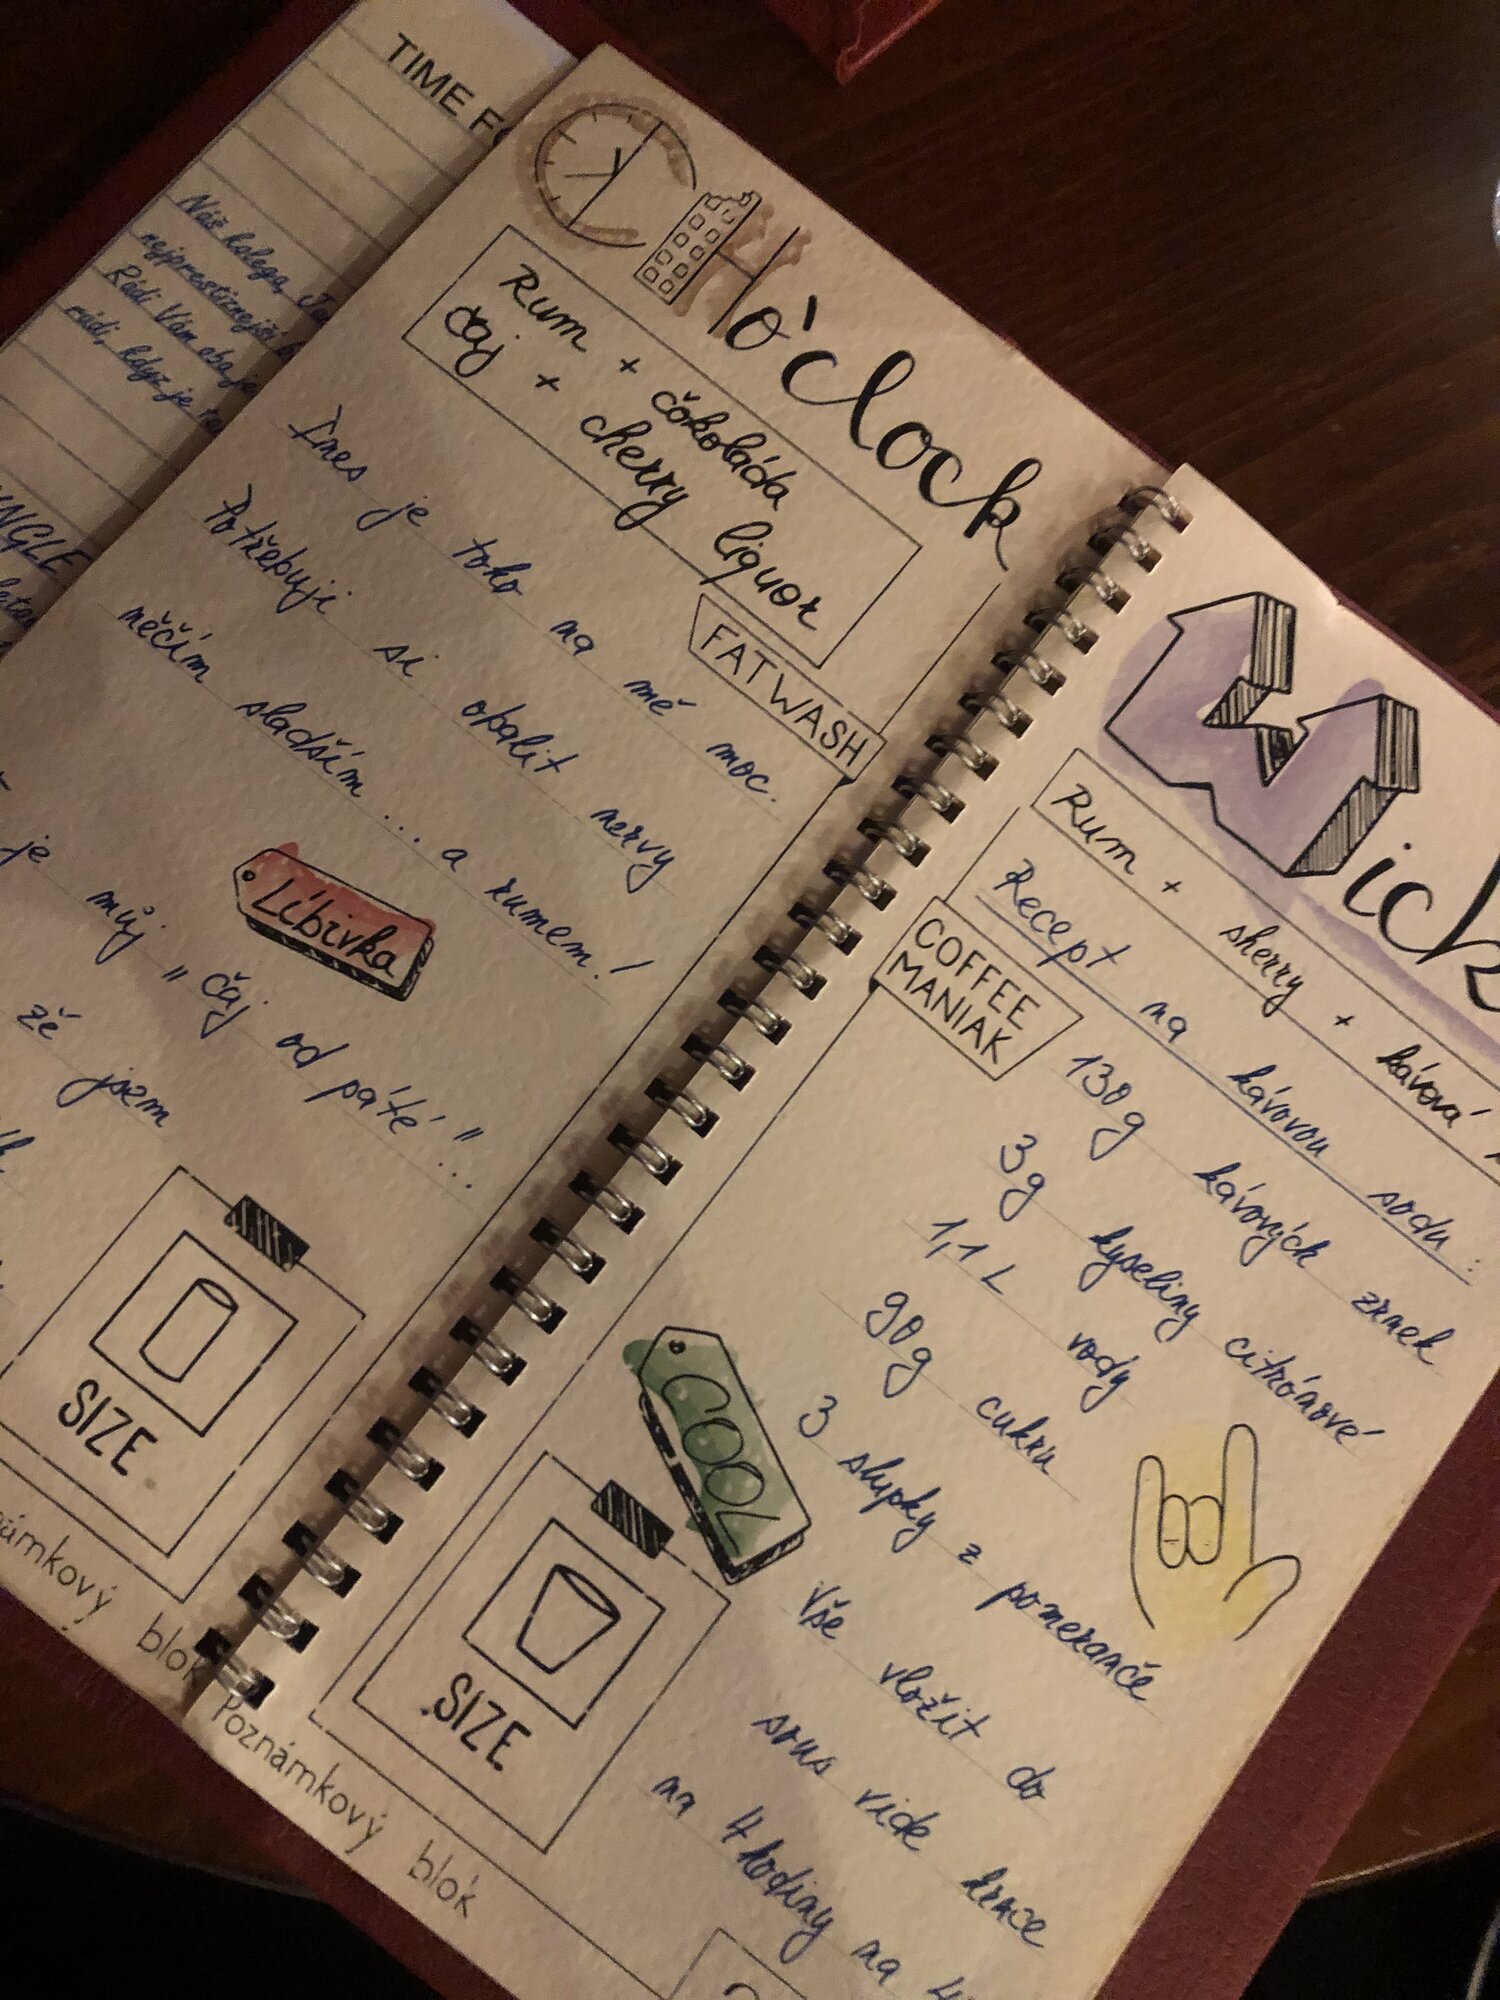 TIME
Náš kolega,
nejprestižnější
Rádi Vám
rádi, když je
CHo'clock
Rum + čokoláda
čaj + cherry liquor
FATWASH
Dnes je toho na mě moc.
Potřebuji si obalit nervy
něčím sladším ... a rumem!
je můj „čaj od páté"...
že jsem
Líbivka
SIZE
blok
Wick
Rum + sherry + kávová
Recept na kávovou sodu:
COFFEE
MANIAK
130g kávových zrnek
3g kyseliny citrónové
1,1 L vody
90g cukru
3 slupky z pomeranče
COOL
Vše vložit do
sous vide lázně
na 4 hodiny na
SIZE
Poznámkový blok